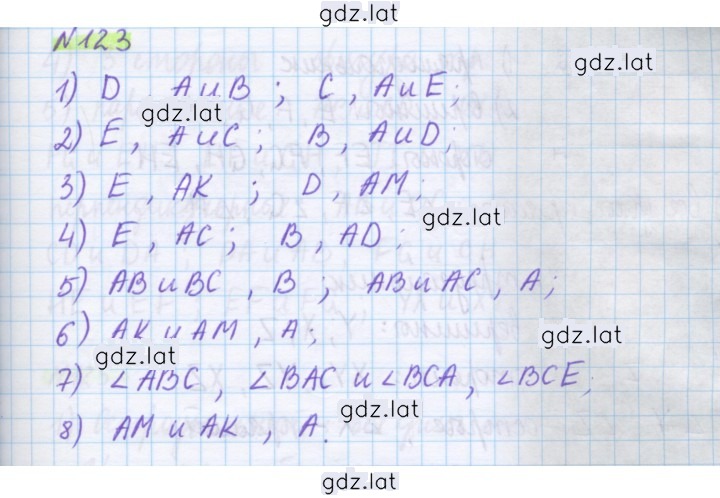 gdz.lat
N123
gdz.lat
1) D A и B ; C , A и E ;
gdz.lat
2) E , A и C ; B , A и D ;
3) E , AK ; D , AM ;
gdz.lat
4) E , AC ; B , AD ;
5) AB и BC , B ; AB и AC , A ;
6) AK и AM , A ;
gdz.lat
gdz.lat
7) ∠ABC , ∠BAC и ∠BCA , ∠BCE ;
gdz.lat
8) AM и AK , A .
gdz.lat